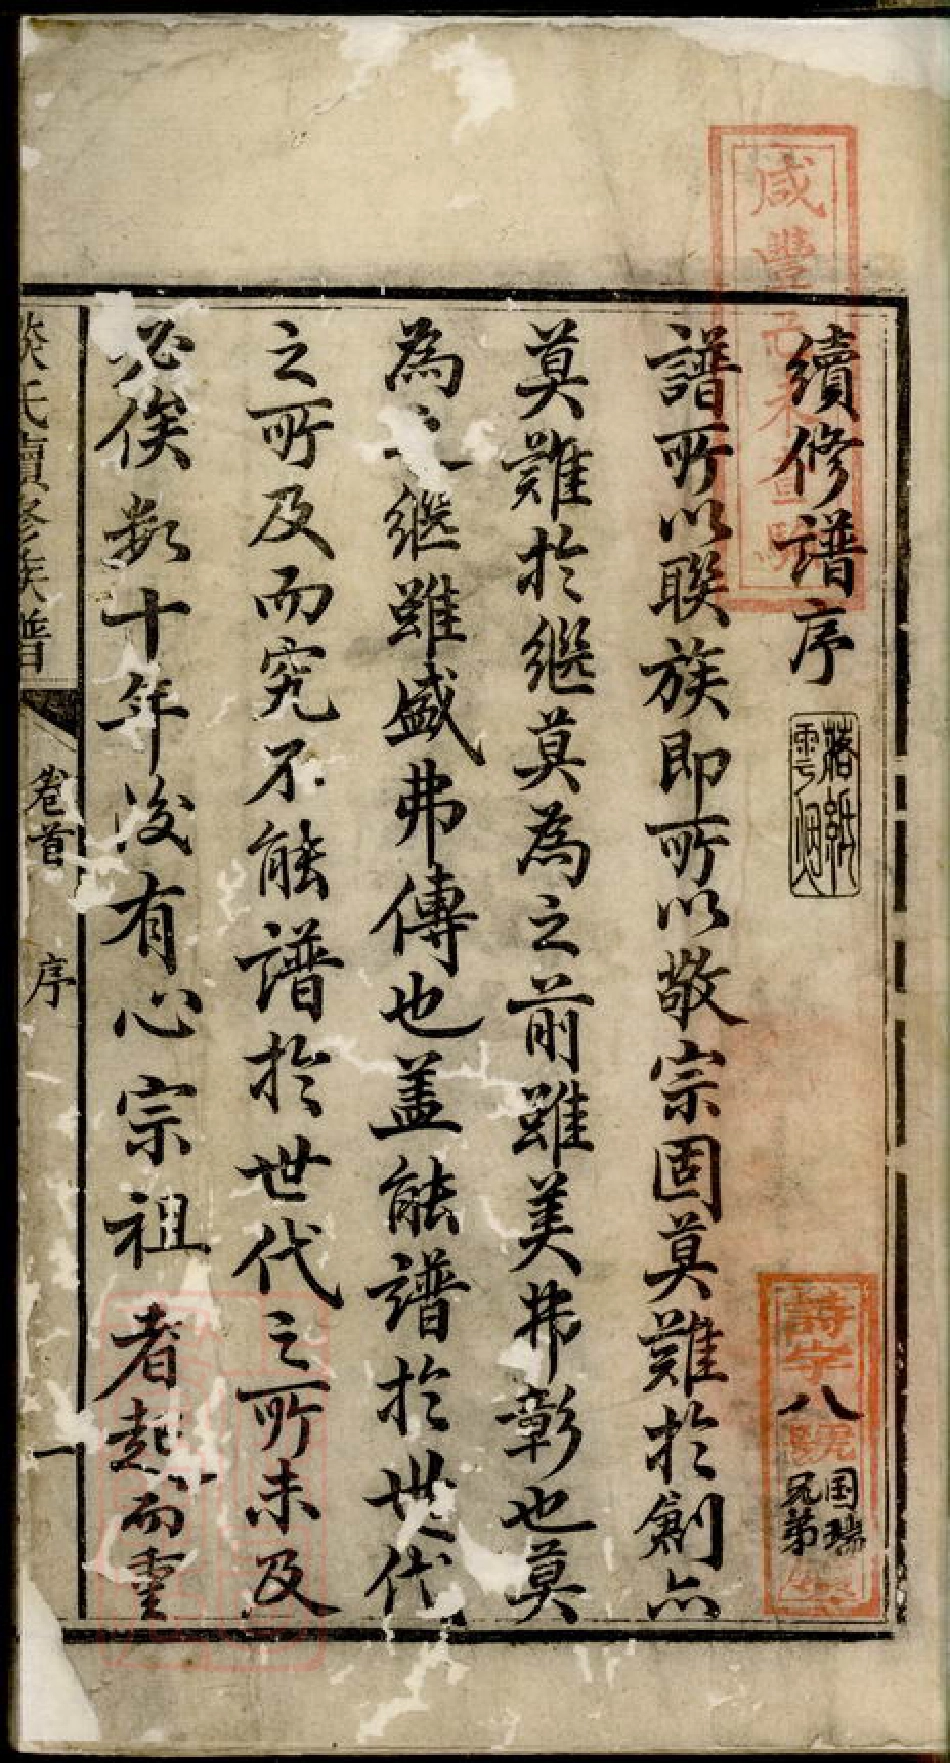 咸豐己未查驗
續修譜序
落紙雲烟
詩字八號
国瑞兄弟
譜所以聯族即所以敬宗固莫難於創亦
莫難於繼莫為之前雖美弗彰也莫
為之繼雖盛弗傳也盖能譜於世代
之所及而究不能譜於世代之所未及
必俟數十年後有心宗祖者起而重
氏續修族譜
卷首
序
一